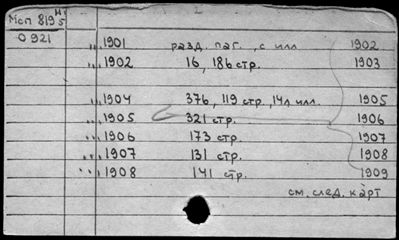 Мсп 8195
0921
,,, 1901 разд. паг., с илл 1902
,,, 1902 16, 186 стр. 1903
,,, 1904 376, 119 стр., 14л илл. 1905
,,, 1905 321 стр. 1906
,,, 1906 173 стр. 1907
,,, 1907 131 стр. 1908
,,, 1908 141 стр. 1909
см. след. карт